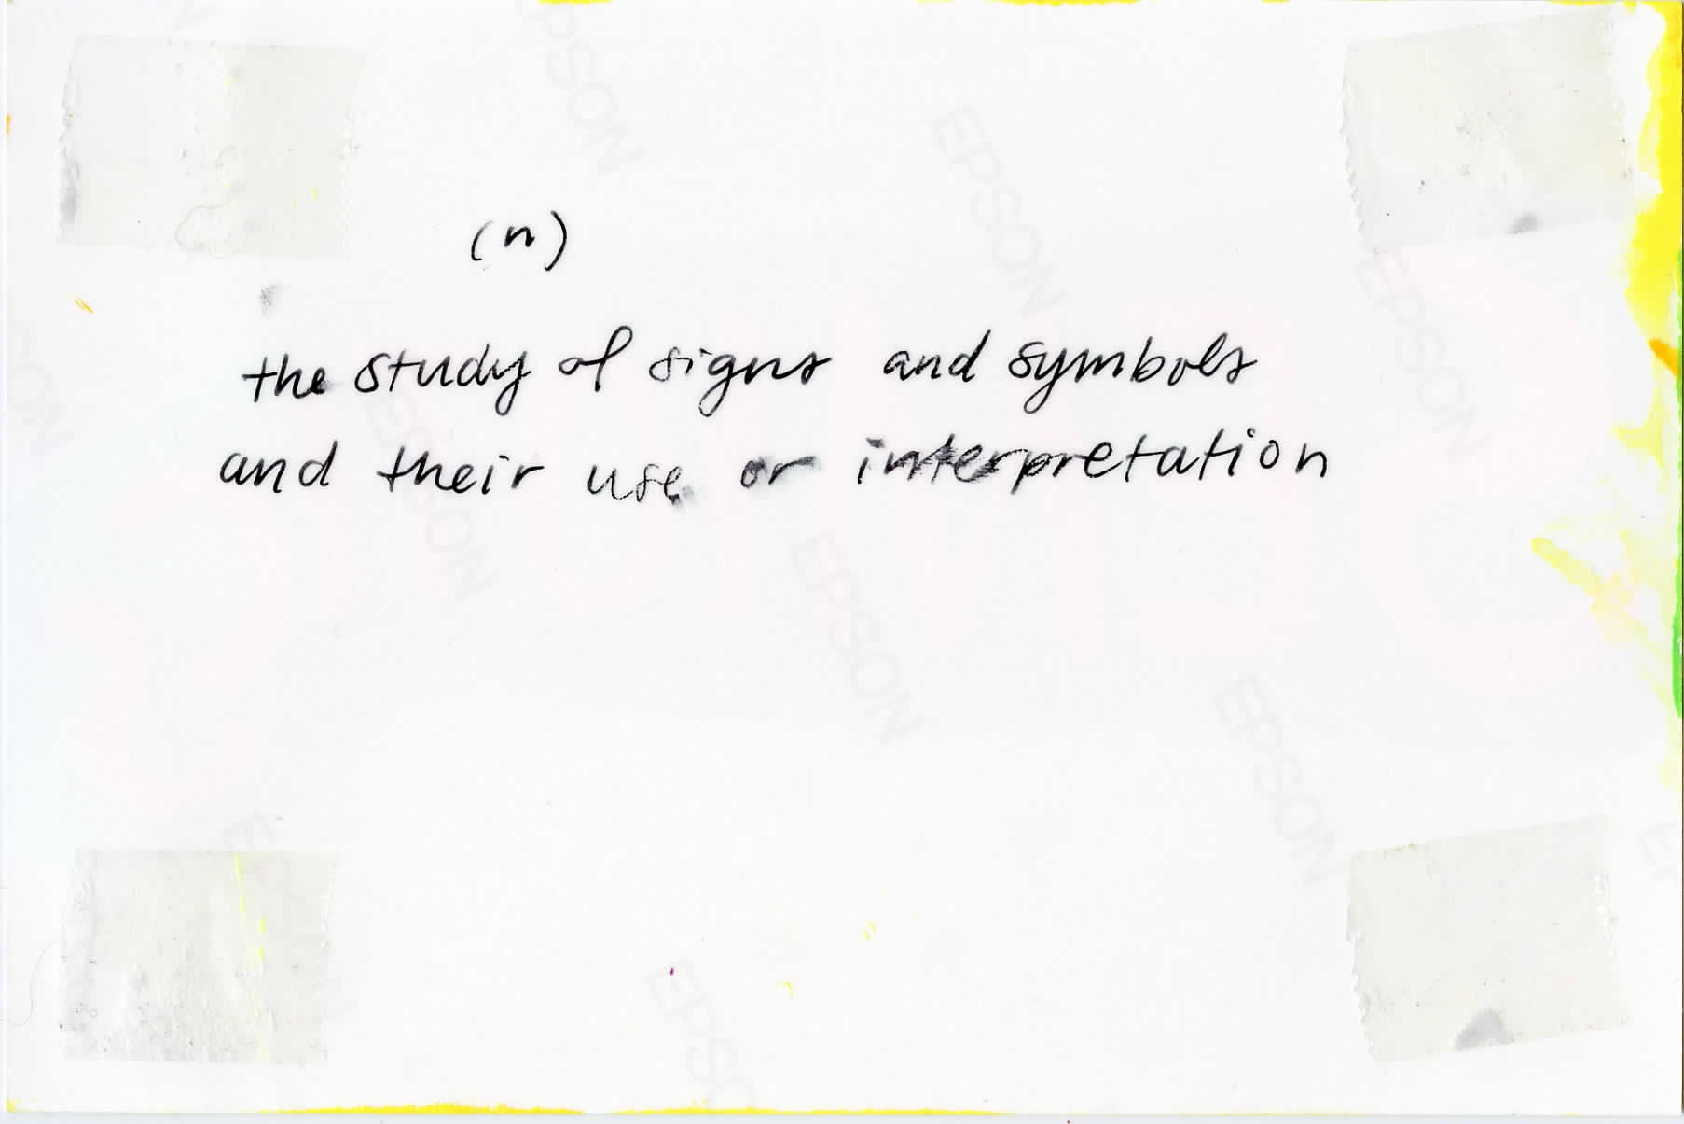 (n)
the study of signs and symbols
and their use or interpretation
EPSON
EPSON
EPSON
EPSON
EPSON
EPSON
EPSON